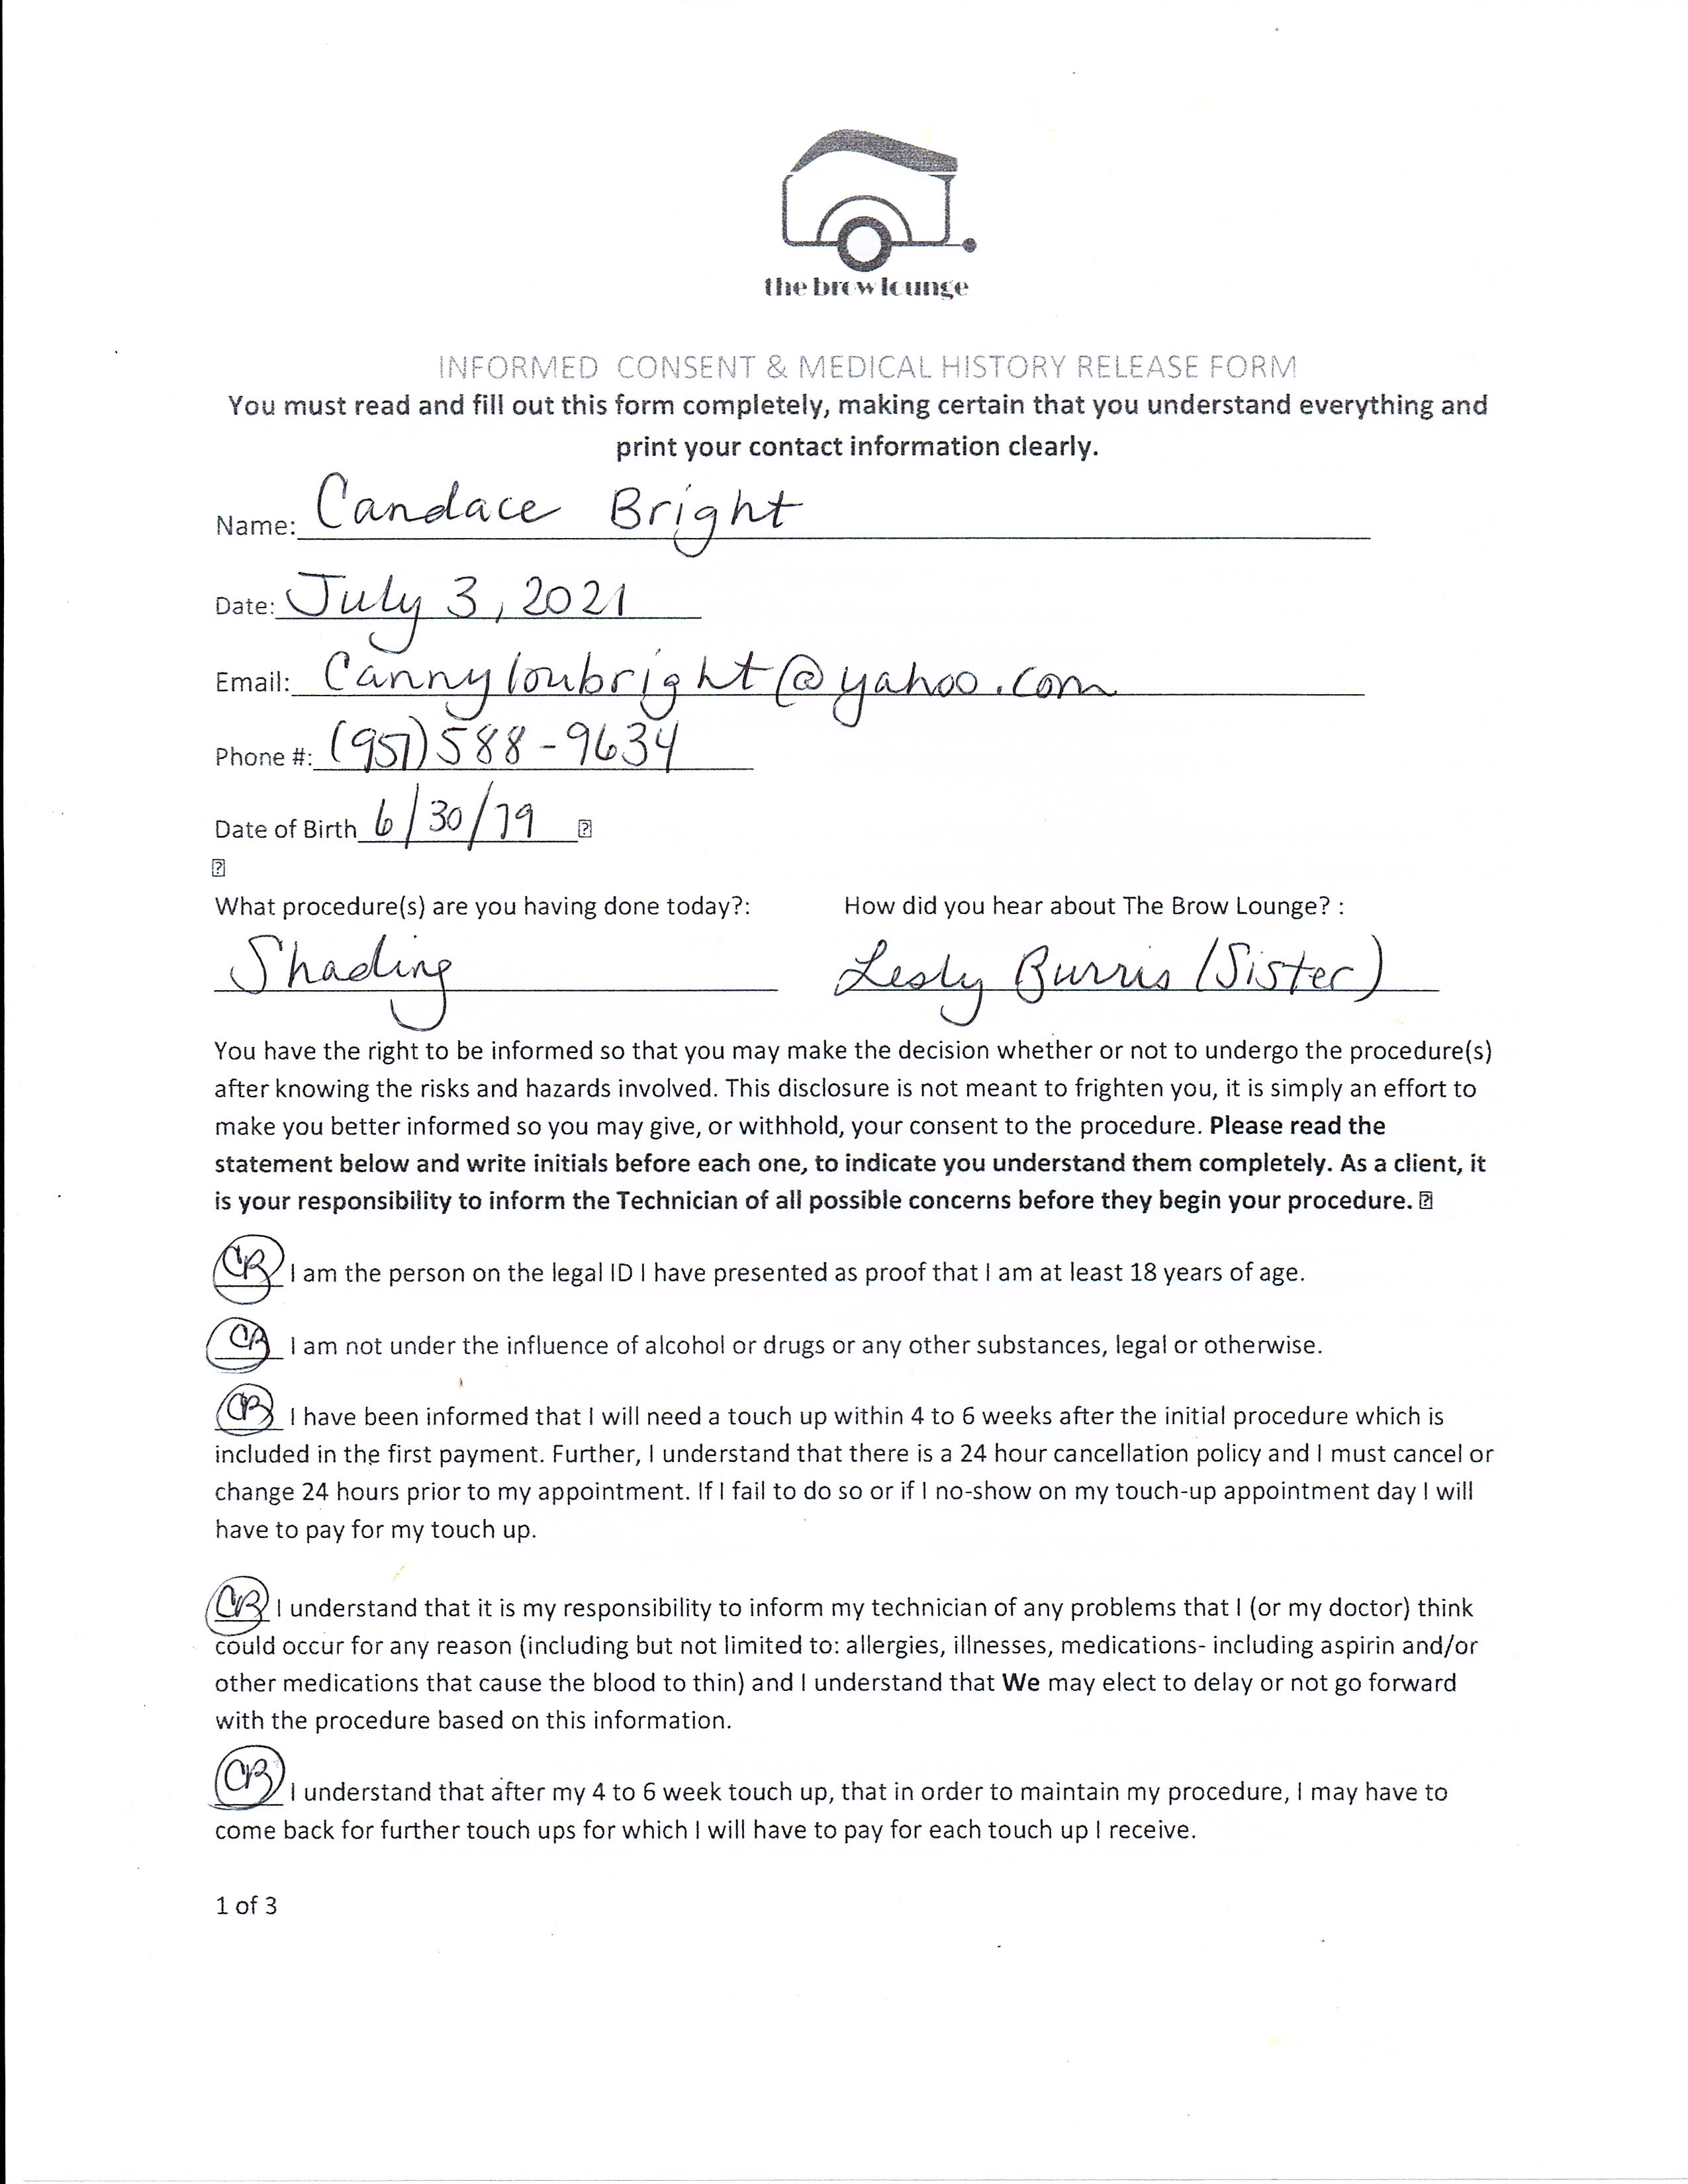 the brow lounge
INFORMED CONSENT & MEDICAL HISTORY RELEASE FORM
You must read and fill out this form completely, making certain that you understand everything and
print your contact information clearly.
Name: Candace Bright
Date: July 3, 2021
Email: Cannyloubright@yahoo.com
Phone #: (951) 588-9634
Date of Birth 6/30/79
What procedure(s) are you having done today?: How did you hear about The Brow Lounge? :
Shading Lesly Burris (Sister)
You have the right to be informed so that you may make the decision whether or not to undergo the procedure(s)
after knowing the risks and hazards involved. This disclosure is not meant to frighten you, it is simply an effort to
make you better informed so you may give, or withhold, your consent to the procedure. Please read the
statement below and write initials before each one, to indicate you understand them completely. As a client, it
is your responsibility to inform the Technician of all possible concerns before they begin your procedure.
CB I am the person on the legal ID I have presented as proof that I am at least 18 years of age.
CB I am not under the influence of alcohol or drugs or any other substances, legal or otherwise.
CB I have been informed that I will need a touch up within 4 to 6 weeks after the initial procedure which is
included in the first payment. Further, I understand that there is a 24 hour cancellation policy and I must cancel or
change 24 hours prior to my appointment. If I fail to do so or if I no-show on my touch-up appointment day I will
have to pay for my touch up.
CB I understand that it is my responsibility to inform my technician of any problems that I (or my doctor) think
could occur for any reason (including but not limited to: allergies, illnesses, medications- including aspirin and/or
other medications that cause the blood to thin) and I understand that We may elect to delay or not go forward
with the procedure based on this information.
CB I understand that after my 4 to 6 week touch up, that in order to maintain my procedure, I may have to
come back for further touch ups for which I will have to pay for each touch up I receive.
1 of 3